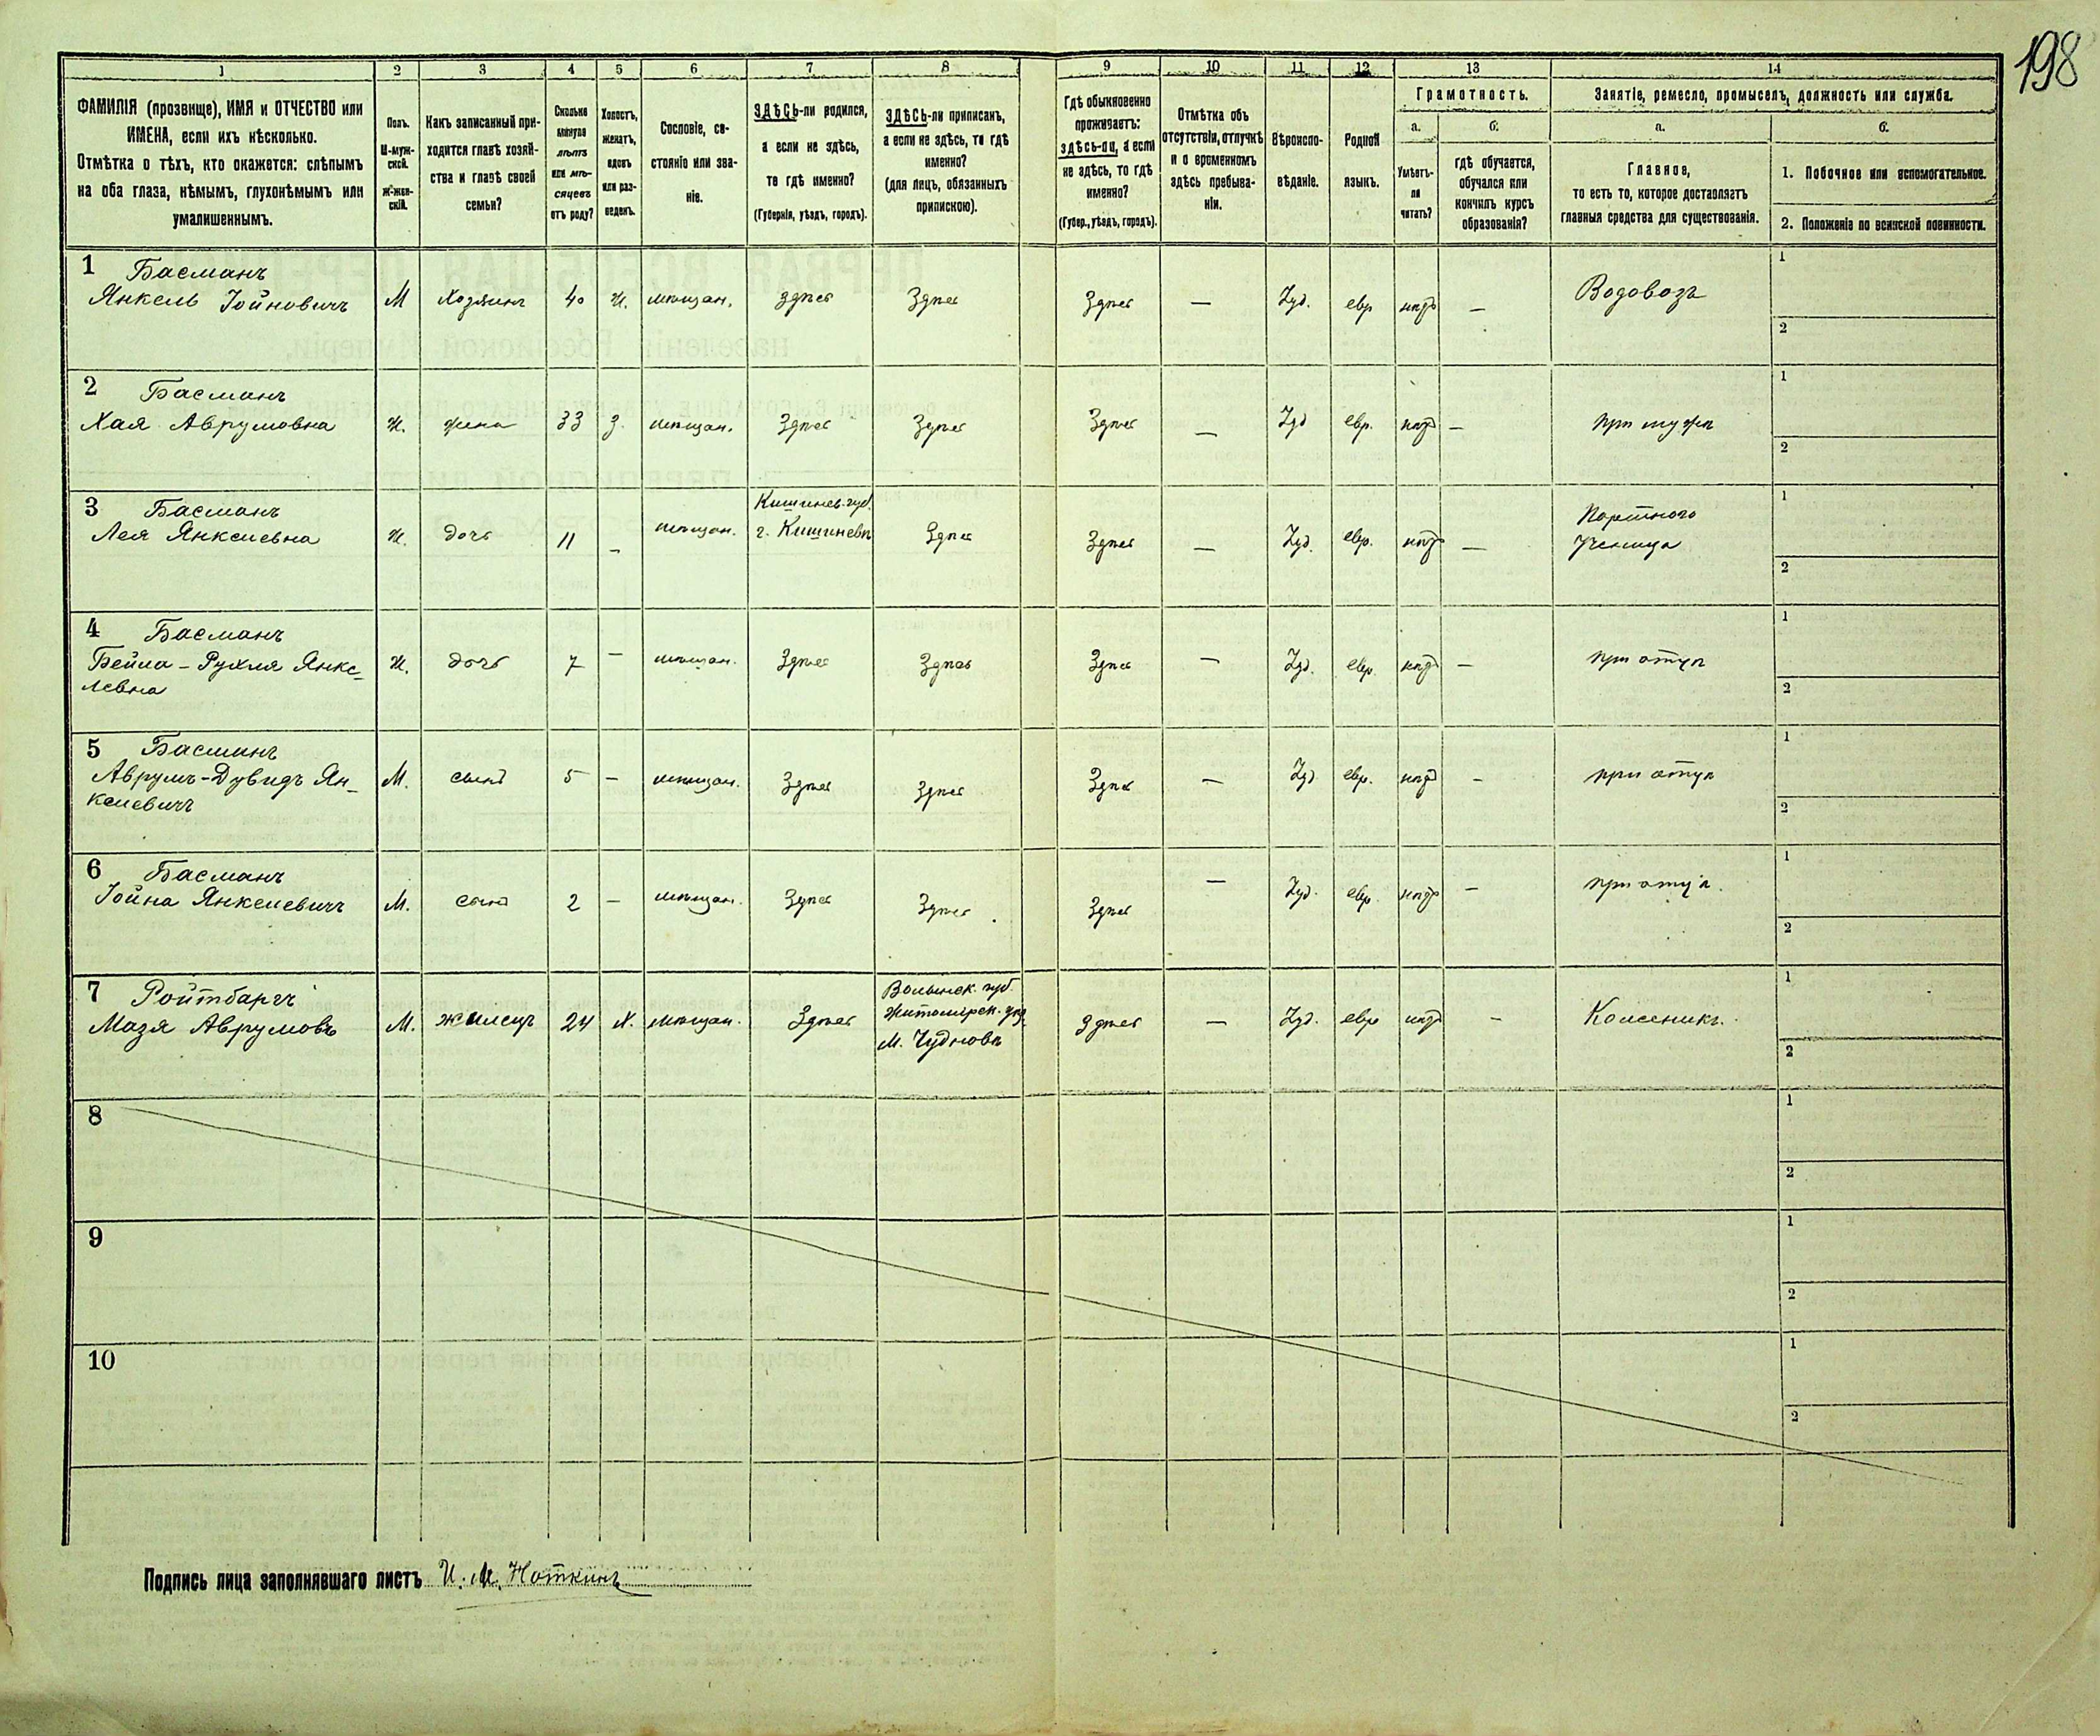 198
1
2
3
4
5
6
7
8
9
10
11
12
13
14
ФАМИЛІЯ (прозвище), ИМЯ и ОТЧЕСТВО или
ИМЕНА, если ихъ нѣсколько.
Отмѣтка о тѣхъ, кто окажется: слѣпымъ
на оба глаза, нѣмымъ, глухонѣмымъ или
умалишеннымъ.
Полъ.
М-муж-
ской.
Ж-жен-
скій.
Какъ записанный при-
ходится главѣ хозяй-
ства и главѣ своей
семьи?
Сколько
минуло
лѣтъ
или мѣ-
сяцевъ
отъ роду?
Холостъ,
женатъ,
вдовъ
или раз-
веденъ.
Сословіе, со-
стояніе или зва-
ніе.
ЗДѢСЬ-ли родился,
а если не здѣсь,
то гдѣ именно?
(Губернія, уѣздъ, городъ).
ЗДѢСЬ-ли приписанъ,
а если не здѣсь, то гдѣ
именно?
(для лицъ, обязанныхъ
припискою).
Гдѣ обыкновенно
проживаетъ:
здѣсь-ли, а если
не здѣсь, то гдѣ
именно?
(Губер., уѣздъ, городъ).
Отмѣтка объ
отсутствіи, отлучкѣ
и о временномъ
здѣсь пребыва-
ніи.
Вѣроиспо-
вѣданіе.
Родной
языкъ.
Грамотность.
а.
Умѣетъ-
ли
читать?
б.
гдѣ обучается,
обучался или
кончилъ курсъ
образованія?
Занятіе, ремесло, промыселъ, должность или служба.
а.
Главное,
то есть то, которое доставляетъ
главныя средства для существованія.
б.
1. Побочное или вспомогательное.
2. Положеніе по воинской повинности.
1 Басманъ
Янкель Іойновичъ М Хозяинъ 40 ж. мѣщан. здѣсь Здѣсь Здѣсь — Іуд. евр нѣтъ — Водовозъ
1
2
2 Басманъ
Хая Аврумовна ж. жена 33 з. мѣщан. Здѣсь Здѣсь Здѣсь — Іуд евр. нѣтъ — при мужѣ
1
2
3 Басманъ
Лея Янкелевна ж. дочь 11 — мѣщан. Кишинев. губ.
г. Кишиневъ Здѣсь Здѣсь — Іуд. евр. нѣтъ — Портного
Ученица
1
2
4 Басманъ
Бейла-Рухля Янке-
левна ж. дочь 7 — мѣщан. Здѣсь Здѣсь Здѣсь — Іуд. евр. нѣтъ — при отцѣ
1
2
5 Басманъ
Аврумъ-Дувидъ Ян-
келевичъ М. сынъ 5 — мѣщан. Здѣсь Здѣсь Здѣсь — Іуд. евр. нѣтъ — при отцѣ
1
2
6 Басманъ
Іойна Янкелевичъ М. сынъ 2 — мѣщан. Здѣсь Здѣсь. Здѣсь — Іуд. евр. нѣтъ — при отцѣ.
1
2
7 Ройтбаргъ
Мазя Аврумовъ М. жилецъ 24 х. мѣщан. Здѣсь Волынск. губ.
Житомірск. уѣз.
М. Чудновъ Здѣсь — Іуд. евр нѣтъ — Колесникъ.
1
2
8
1
2
9
1
2
10
1
2
Подпись лица заполнявшаго листъ И. М. Ноткинъ